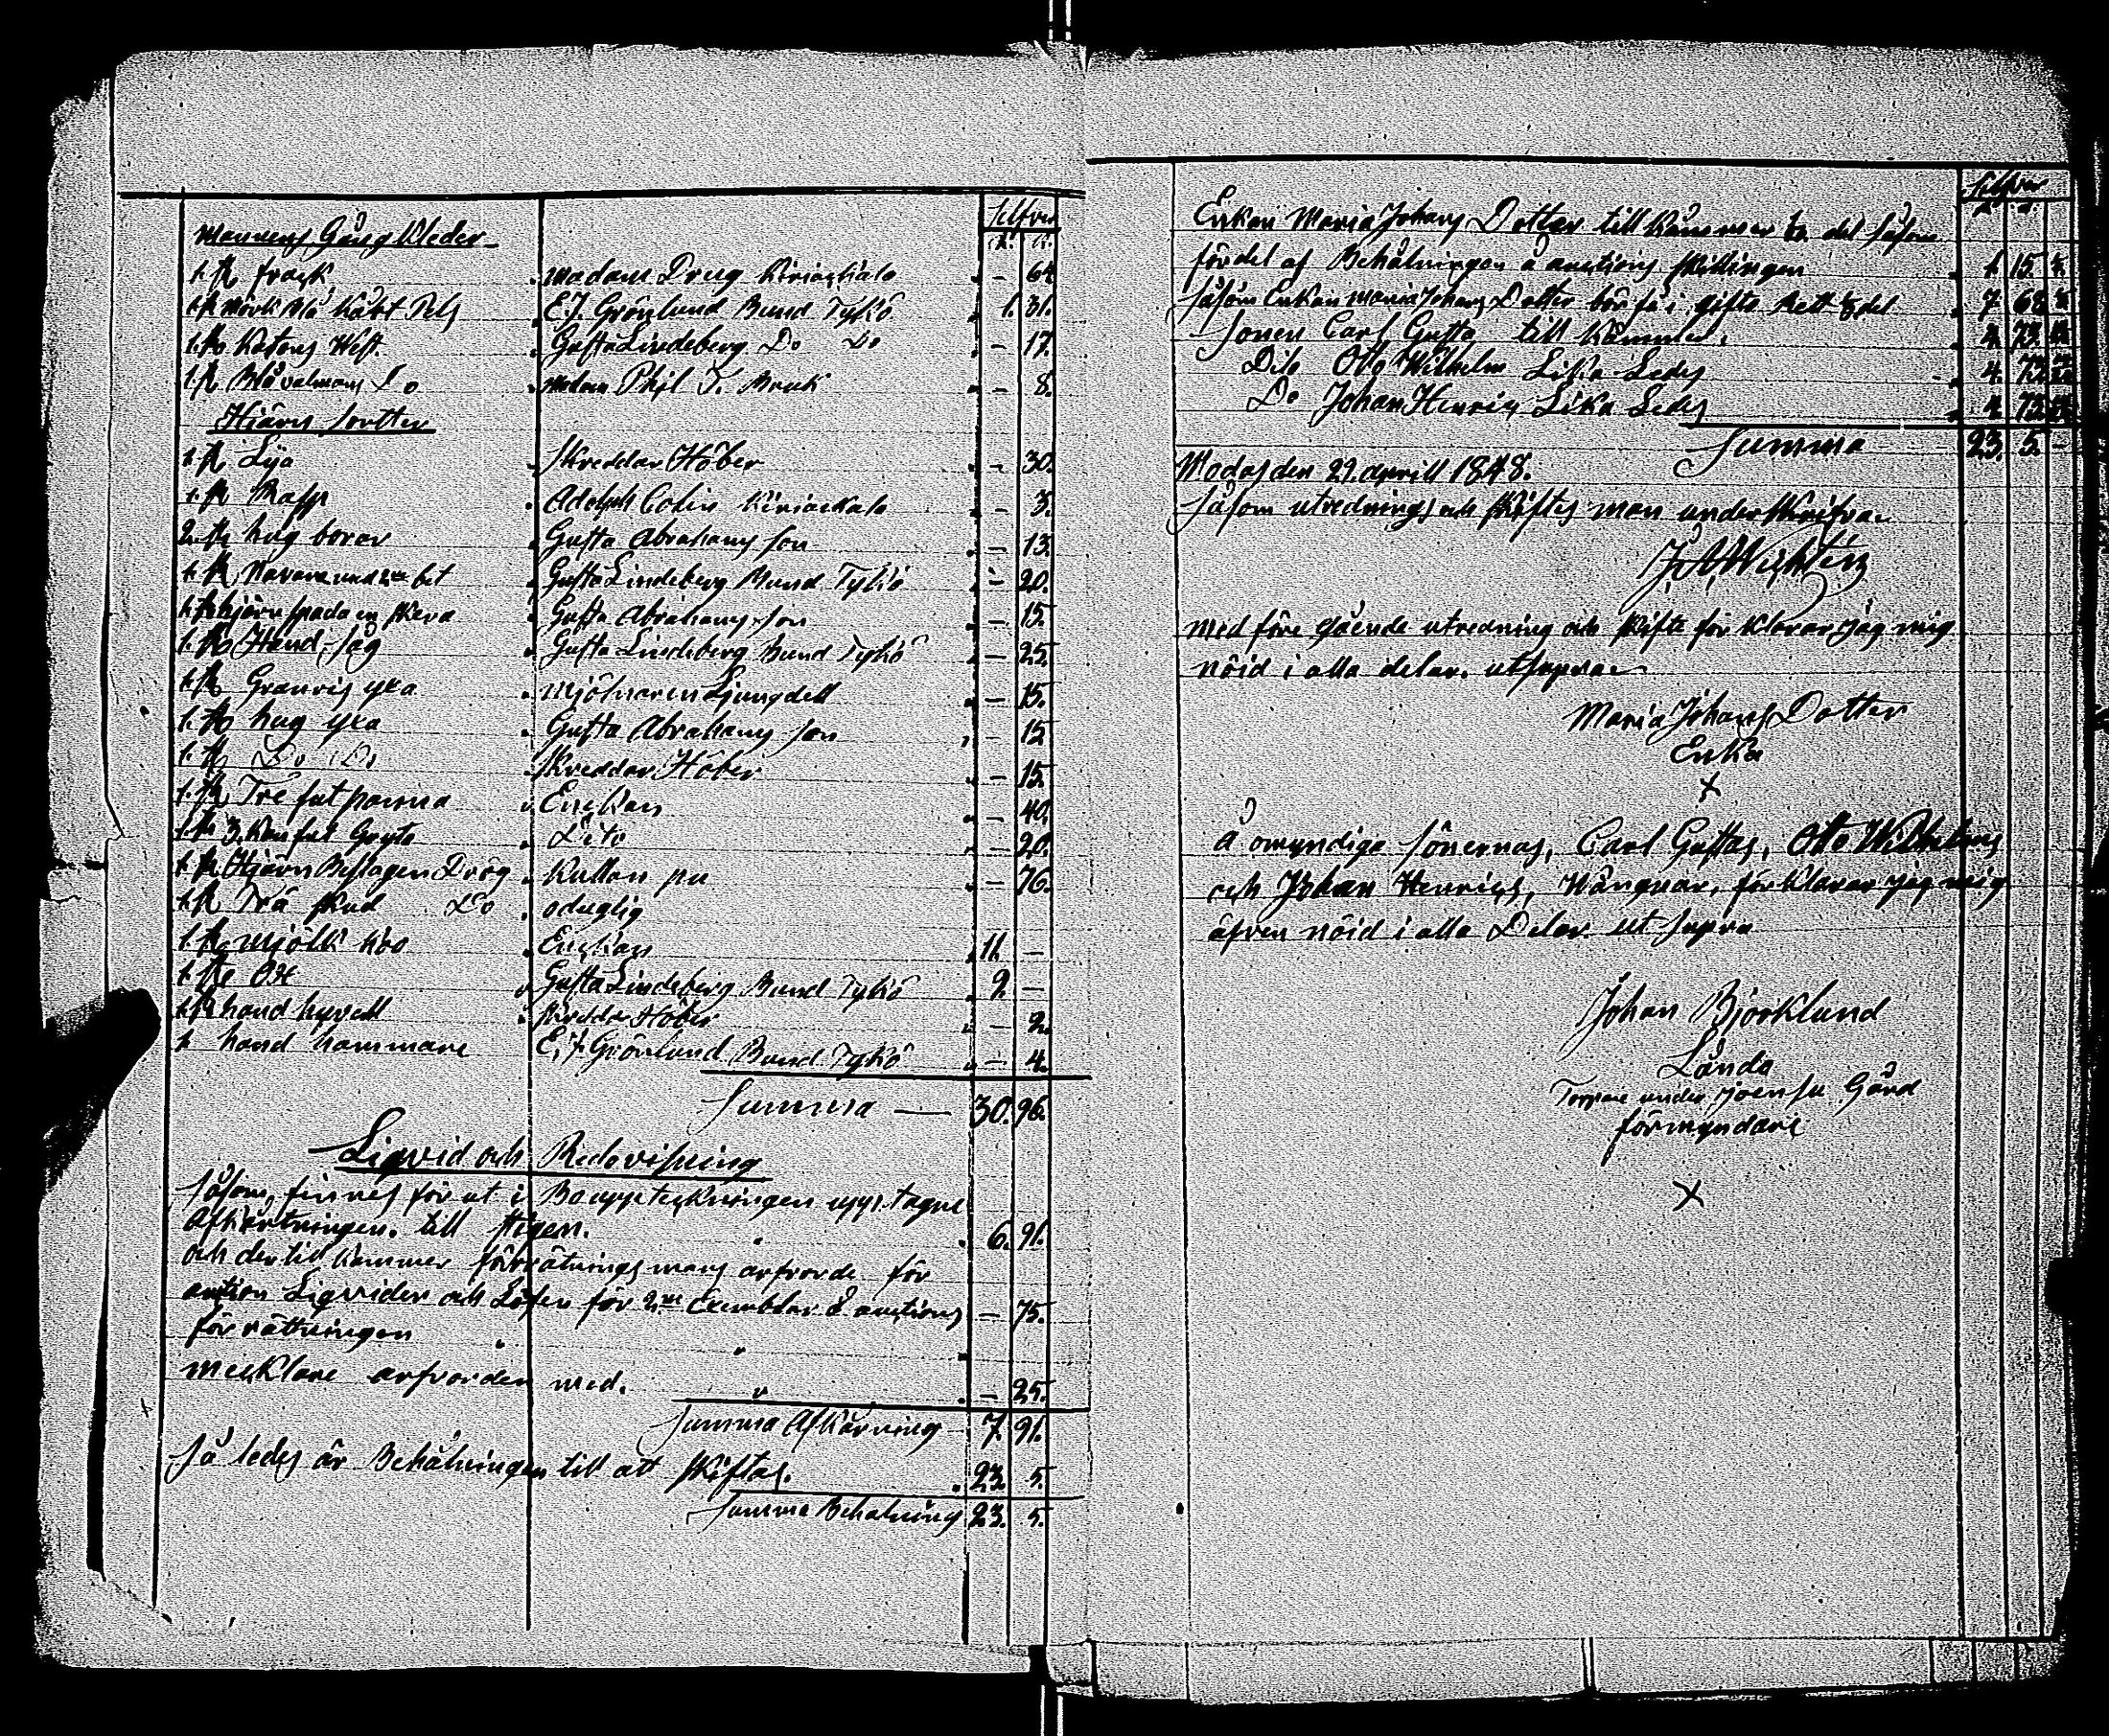 Silfver
R. K.
Mannens Gång Kleder
1. st frack madam Drug Kirjackala - 64
1. st Mörk Blå kårt Pels E. J. Grönlund Bund Tykö 1. 31.
1. st Katons West. Gusta Lindeberg Do Do - 17.
1. st Blå valmans Do madam Phil T. Bruk - 8.
Hjärns sortter
1. st Lija Skreddar Höber - 30.
1. st Rasp Adolph Colin Kiriackala - 3.
2. st hug borar Gusta Abrahams son - 13.
1. st Navare und 2ne bet Gusta Lindeberg Bund Tykö - 20.
1. st hjärn spada en skeva Gusta Abrahams son - 15.
1. st Hand såg Gusta Lindeberg Bund Tykö - 25.
1. st Granris yxa mjölnaren Ljungdell - 15.
1. st hug yxa Gusta Abrahams son - 15
1. st Do Do Skreddar Höber - 15.
1. st Tre fut panna Enckan - 40.
1. st 3. kan fut Gryta Dito - 20.
1. st Hjärn Beslagen Drög Kullan pu - 76.
1. st Trä skud Do oduglig
1. st mjölk koo Enckan 11. -
1. st Ox Gusta Lindeberg Bund Tykö 9. -
1. st hand hyvell skreddar Höber - 2.
1. hand hammare E. J. Grönlund Bund Tykö - 4.
Summa — 30. 96.
Liqvid och Redovisning
såsom finnes för ut i Bouppteckningen upp. tagne
Afkårtningen. till stigen. 6. 91.
och der till kommer förrätnings mans arfvorde för
auction Liqvider och Lösen för 2ne Exemblar å auctions - 75.
förrättningen
mecklare arfvorden med. - 25.
Summa Afkårning 7. 91.
Så ledes är Behålningen till att skiftas. 23. 5.
Summa Behalning 23. 5.
Silfver
R. K.
Enkan Maria Johans Dotter till kåmmer del såsom
fördel af Behålningen å auctions skillingen 1. 15.
såsom Enkan Maria Johans Dotter bör få i gifto Rett del 7. 68
Sonen Carl Gusta till kåmmer. 4. 73.
Dito Otto Wilhelm Lika Ledes 4. 73.
Do Johan Henric Lika Ledes 4. 73.
Summa 23. 5. -
Modas den 29. aprill 1848.
såsom utrednings och skiftes man underskrifva
med före gående utredning och skifte för klarar jag mig
nöid i alla delar. ut supra
Maria Johans Dotter
Enka
x
å omyndige sönernas, Carl Gustas, Otto Wilhelms
och Johan Henrics, Wängnar, förklarar jag mig
äfven nöid i alla Delar. ut supra
Johan Björklund
Lånda
Torpare under joensu Gård
förmyndare
x